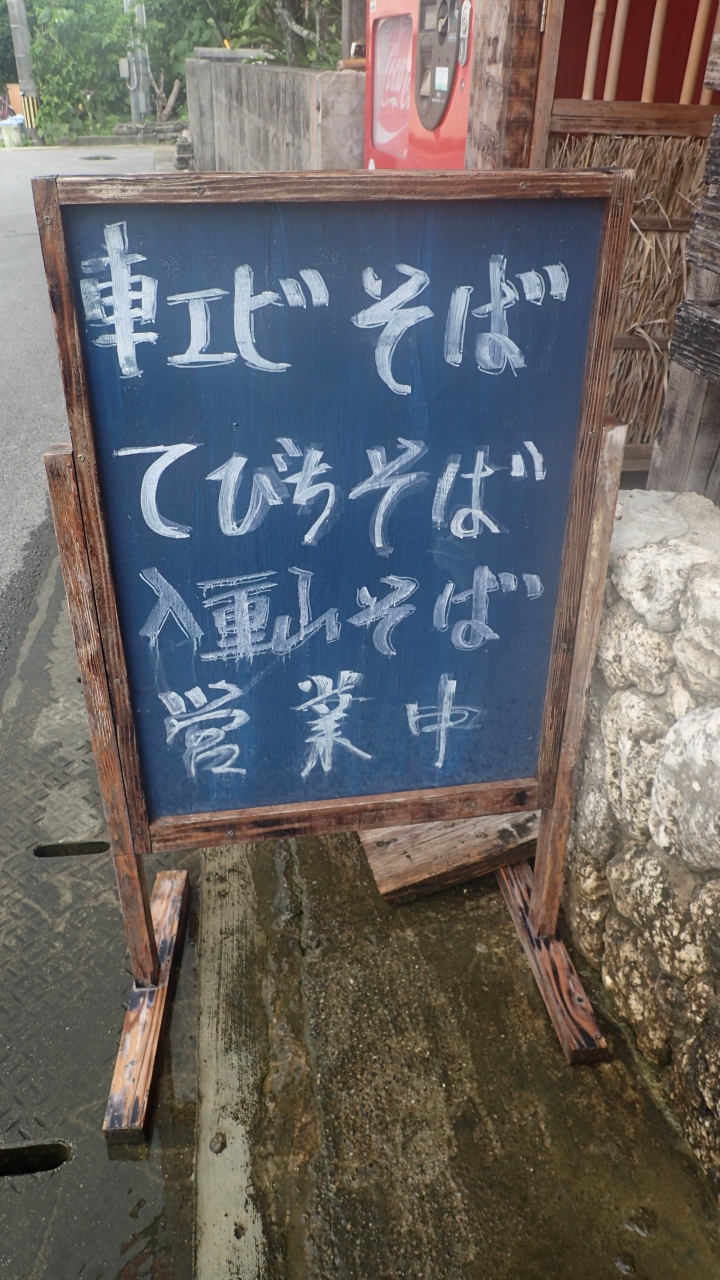 Coca
車エビそば
てびちそば
八重山そば
営業中